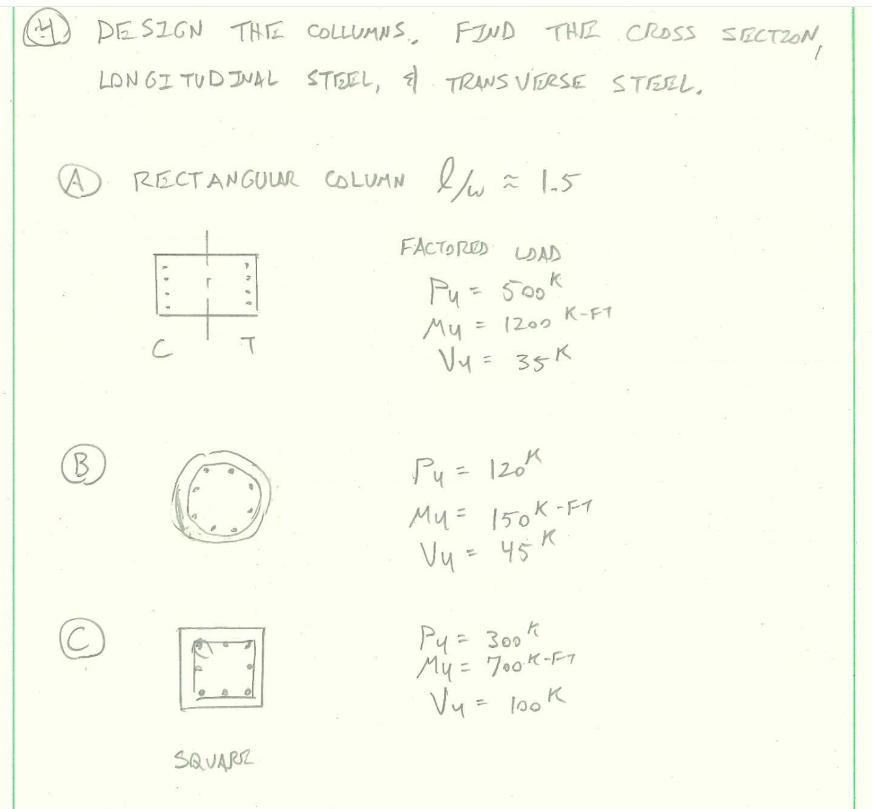 4 DESIGN THE COLLUMNS. FIND THE CROSS SECTION,
LONGITUDINAL STEEL, & TRANSVERSE STEEL.
A RECTANGULAR COLUMN l/w ≈ 1.5
FACTORED LOAD
Pu = 500 K
Mu = 1200 K-FT
Vu = 35 K
C T
B
Pu = 120 K
Mu = 150 K-FT
Vu = 45 K
C
Pu = 300 K
Mu = 700 K-FT
Vu = 100 K
SQUARE